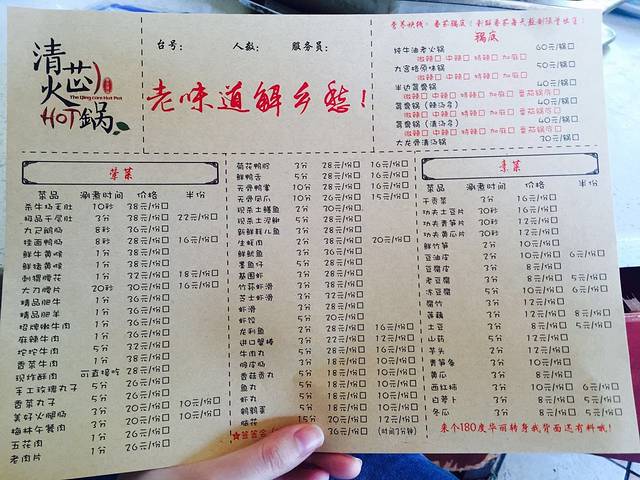 清芯火锅
The Qing core Hot Pot
HOT锅
台号: 人数: 服务员:
老味道解乡愁!
锅底
纯牛油老火锅 60元/锅□
微辣□ 中辣□ 特辣□ 加麻□
九宫格原味锅 50元/锅□
微辣□ 中辣□ 特辣□ 加麻□
40元/锅□
微辣□ 中辣□ 特辣□ 加麻□ 番茄锅底□
40元/锅□
微辣□ 中辣□ 特辣□ 加麻□ 番茄锅底□
40元/锅□
大龙骨清汤锅 30元/锅□
荤菜
菜品 涮煮时间 价格 半份
杀牛场毛肚 10秒 38元/份□
极品千层肚 3分 38元/份□ 22元/份□
九尺鹅肠 8秒 36元/份□
挂面鸭肠 8秒 28元/份□ 16元/份□
鲜牛黄喉 1分 38元/份□
鲜猪黄喉 1分 38元/份□
刺猬腰花 1分 32元/份□ 18元/份□
大刀腰片 20秒 30元/份□ 16元/份□
精品肥牛 1分 36元/份□
精品肥羊 1分 36元/份□
招牌嫩牛肉 1分 36元/份□
麻辣牛肉 1分 36元/份□
坨坨牛肉 5分 32元/份□
香菜牛肉 1分 38元/份□
现炸酥肉 可直接吃 28元/份□
手工玫瑰丸子 5分 26元/份□
香菜丸子 5分 26元/份□
美好火腿肠 3分 20元/份□ 10元/份□
梅林午餐肉 3分 20元/份□ 10元/份□
五花肉 1分 26元/份□
老肉片 1分 26元/份□
菊花鸭胗 3分 28元/份□ 16元/份□
鲜鸭舌 5分 28元/份□ 16元/份□
无骨鸭掌 10分 28元/份□ 16元/份□
无骨凤爪 10分 26元/份□ 15元/份□
现杀土鳝鱼 2分 30元/份□
现杀土泥鳅 5分 28元/份□
新鲜耗儿鱼 3分 28元/份□
生蚝肉 2分 38元/份□ 20元/份□
鲜鱿鱼 3分 36元/份□
墨鱼仔 5分 28元/份□
基围虾 3分 28元/份□
竹荪虾滑 3分 38元/份□
芝士虾滑 3分 32元/份□
虾滑 3分 28元/份□
虾饺 5分 20元/份□
龙利鱼 2分 28元/份□ 16元/份□
进口蟹棒 3分 22元/份□ 12元/份□
牛肉丸 5分 18元/份□ 10元/份□
脆皮肠 3分 18元/份□ 10元/份□
香菇贡丸 5分 18元/份□ 10元/份□
鱼丸 5分 18元/份□ 10元/份□
虾丸 5分 18元/份□ 10元/份□
鹌鹑蛋 3分 18元/份□ 10元/份□
脑花 15分 20元/份□ 12元/份□
36元/份□
素菜
菜品 涮煮时间 价格 半份
干贡菜 3分 16元/份□
功夫土豆片 30秒 16元/份□
功夫青笋片 30秒 12元/份□
功夫黄瓜片 30秒 12元/份□
鲜竹笋 2分 10元/份□
豆油皮 2分 10元/份□ 6元/份□
豆腐皮 3分 8元/份□
老豆腐 3分 8元/份□ 5元/份□
冻豆腐 5分 10元/份□ 6元/份□
腐竹 3分 12元/份□
莲藕 3分 12元/份□ 8元/份□
土豆 3分 8元/份□ 5元/份□
山药 5分 12元/份□
芋头 2分 12元/份□
青笋条 3分 10元/份□
黄瓜 3分 8元/份□
西红柿 3分 10元/份□ 6元/份□
白萝卜 3分 8元/份□ 5元/份□
冬瓜 3分 8元/份□ 5元/份□
来个180度华丽转身我背面还有料哦!